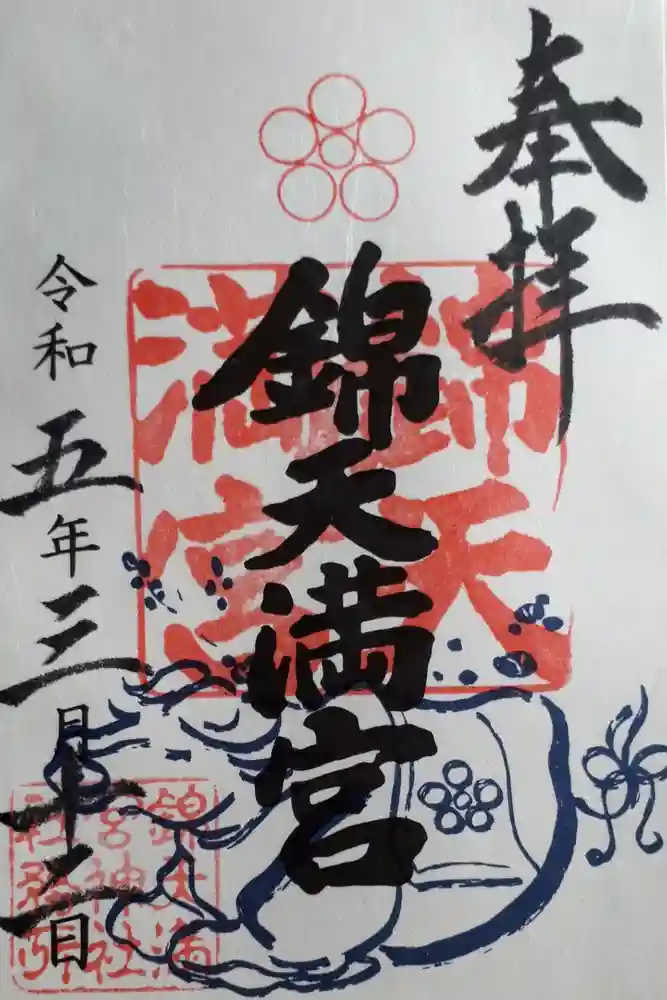 奉拝
錦天満宮
錦天
満宮
令和五年三月十二日
錦天満
宮神社
社務所